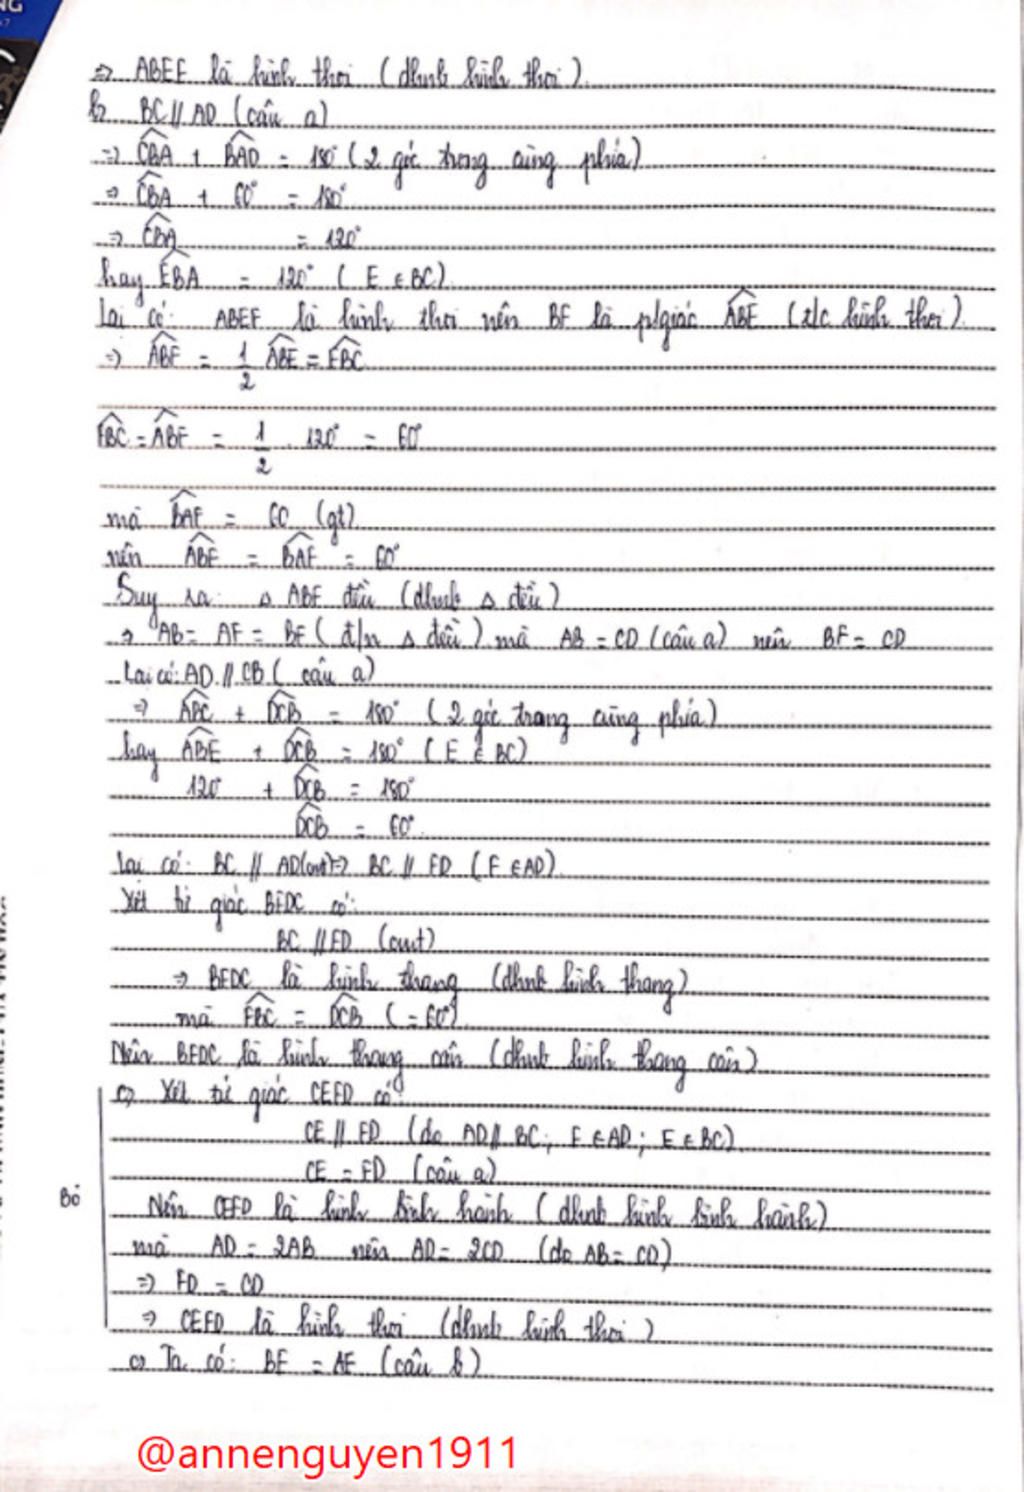 NG
⇒ ABEF là hình thoi (dhnb hình thoi).
b, BC // AD (câu a)
⇒ CBA + BAD = 180° (2 góc trong cùng phía)
⇒ CBA + 60° = 180°
⇒ CBA = 120°
hay EBA = 120° (E ∈ BC).
Lại có: ABEF là hình thoi nên BF là p/giác ABE (t/c hình thoi).
⇒ ABF = 1/2 ABE = FBC
FBC = ABF = 1/2 . 120° = 60°
mà BAF = 60 (gt)
nên ABF = BAF = 60°
Suy ra: Δ ABF đều (dhnb Δ đều)
⇒ AB = AF = BF (đ/n Δ đều) mà AB = CD (câu a) nên BF = CD
Lại có: AD // CB (câu a)
⇒ ABC + DCB = 180° (2 góc trong cùng phía)
hay ABE + DCB = 180° (E ∈ BC)
120° + DCB = 180°
DCB = 60°
Lại có: BC // AD (cmt) ⇒ BC // FD (F ∈ AD)
Xét tứ giác BFDC có:
BC // FD (cmt)
⇒ BFDC là hình thang (dhnb hình thang)
mà FBC = DCB (= 60°)
Nên BFDC là hình thang cân (dhnb hình thang cân)
c, Xét tứ giác CEFD có:
CE // FD (do AD // BC; F ∈ AD; E ∈ BC)
CE = FD (câu a)
Bỏ
Nên CEFD là hình bình hành (dhnb hình bình hành)
mà AD = 2AB nên AD = 2CD (do AB = CD)
⇒ FD = CD
⇒ CEFD là hình thoi (dhnb hình thoi)
c, Ta có: BF = AF (câu b)
@annenguyen1911